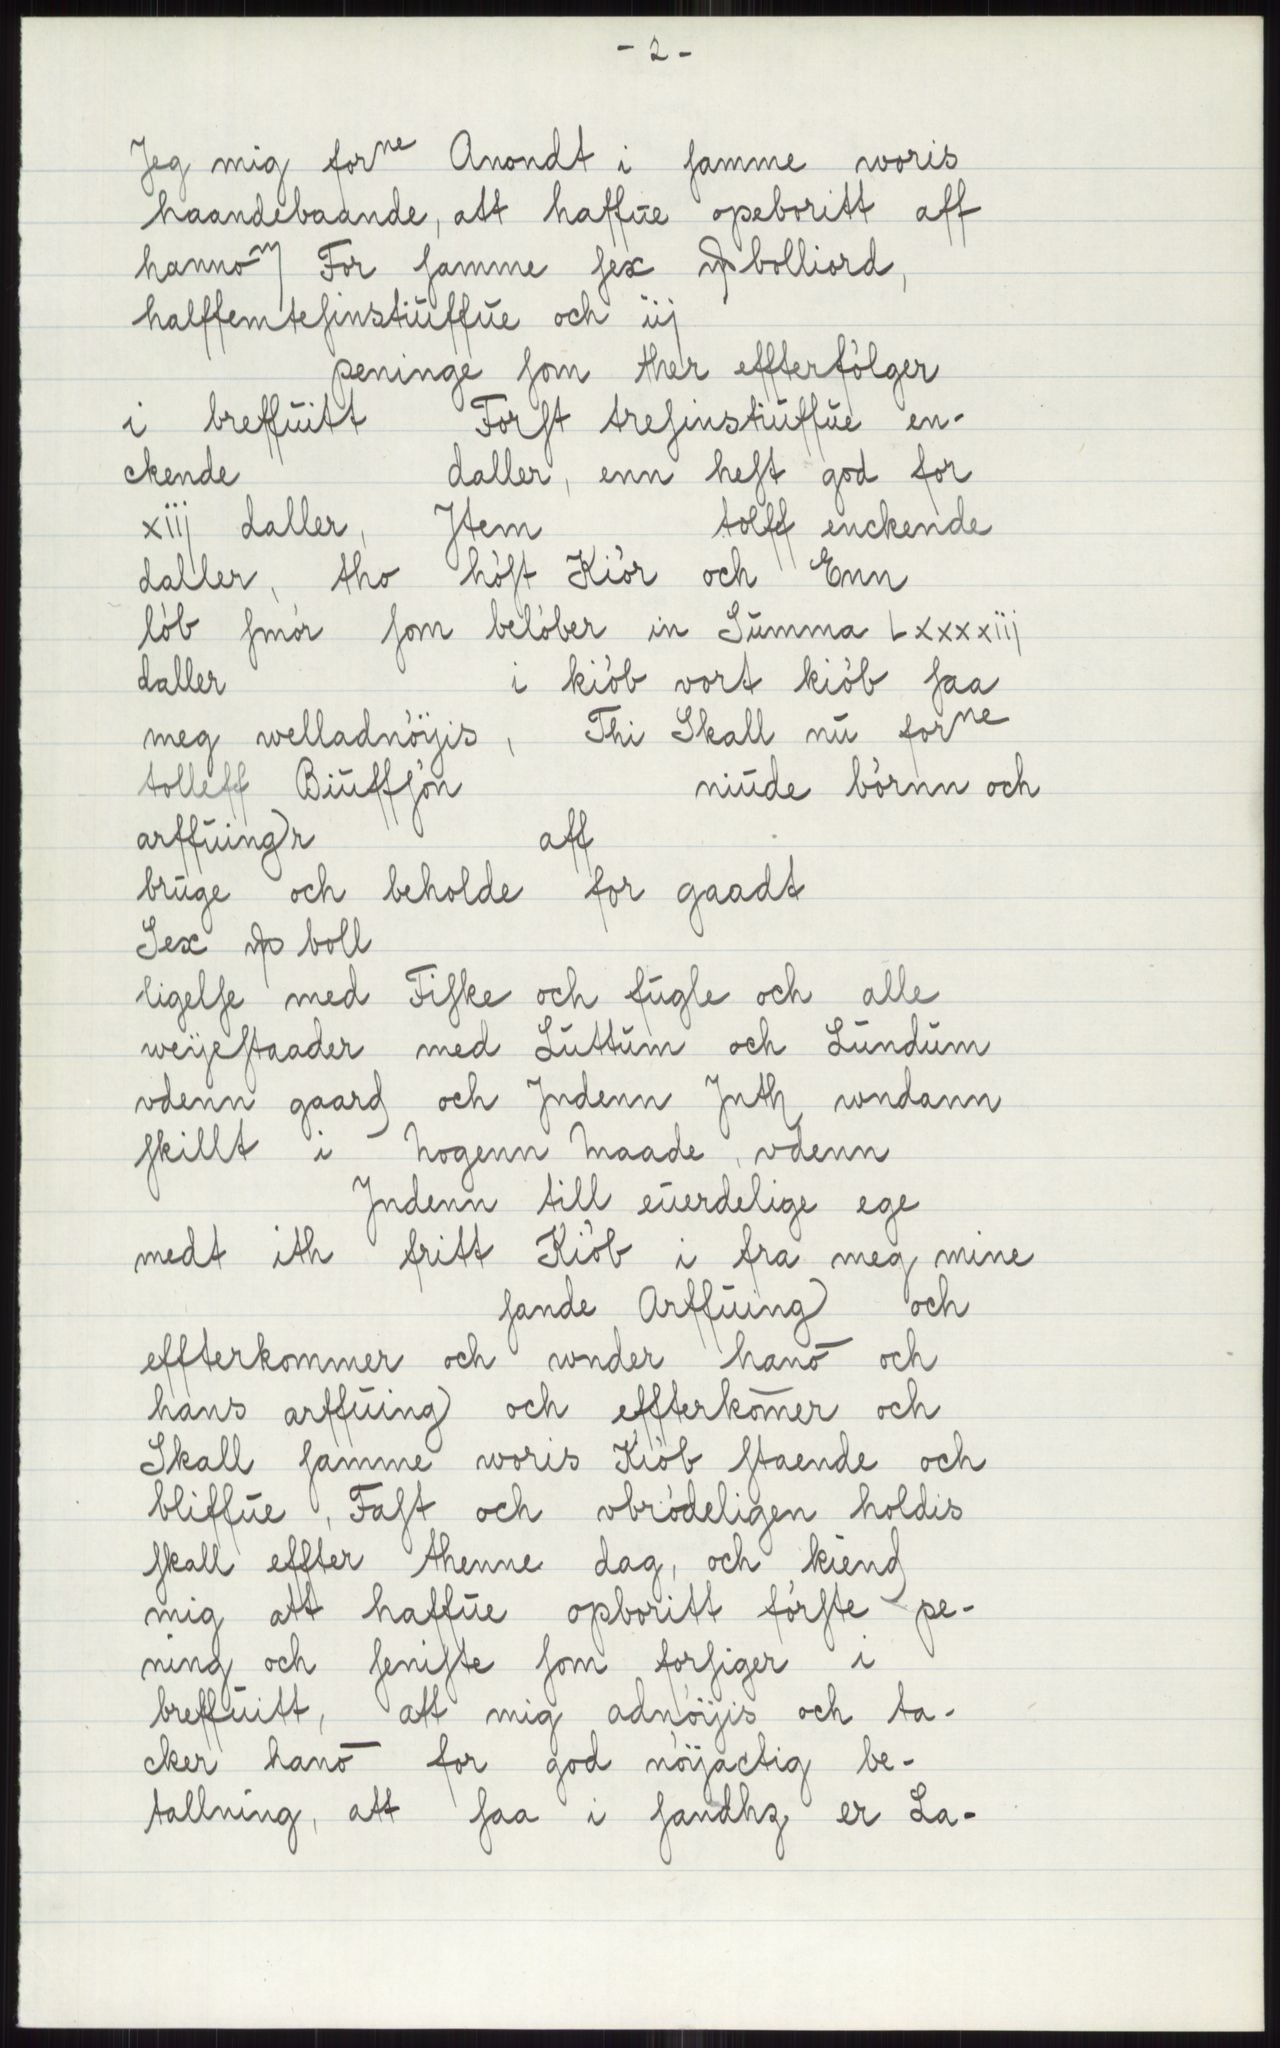 - 2 -
Jeg mig forne Anondt i samme woris
haandebaande, att haffūe opeboritt aff
hannom For samme sex bolliord,
halffemtesinstiūffūe och iij
peninge som ther effterfölger
i breffūitt Forst tresinstiūffūe en-
ckende daller, enn hest god for
xiij daller, Jtem tolff enckende
daller, tho höst Kiör och Enn
löb smör som belöber in Sūmma Lxxxxiij
daller i kiöb vort kiöb saa
meg welladnöÿis, Thi Skall nū forne
tolleff Biūffsön niūde börnn och
arffūingr aff
brūge och beholde for gaadt
Sex boll
ligelse med Fiske och fūgle och alle
weÿestaader med Lūttūm och Lūndūm
vdenn gaard och Jndenn Jnth wndann
skillt i nogenn maade, vdenn
Jndenn till eūerdelige ege
medt ith fritt Kiöb i fra meg mine
sande Arffūing och
effterkommer och wnder hanō och
hans arffūing och effterkōmer och
Skall samme woris Kiöb staende och
bliffūe, Fast och vbrödeligen holdis
skall effter thenne dag, och kiend
mig att haffūe opboritt förste pe-
ning och seniste som forsiger i
breffūitt, att mig adnöÿis och ta-
cker hanō for god nöÿactig be-
tallning, att saa i sandhz er La-